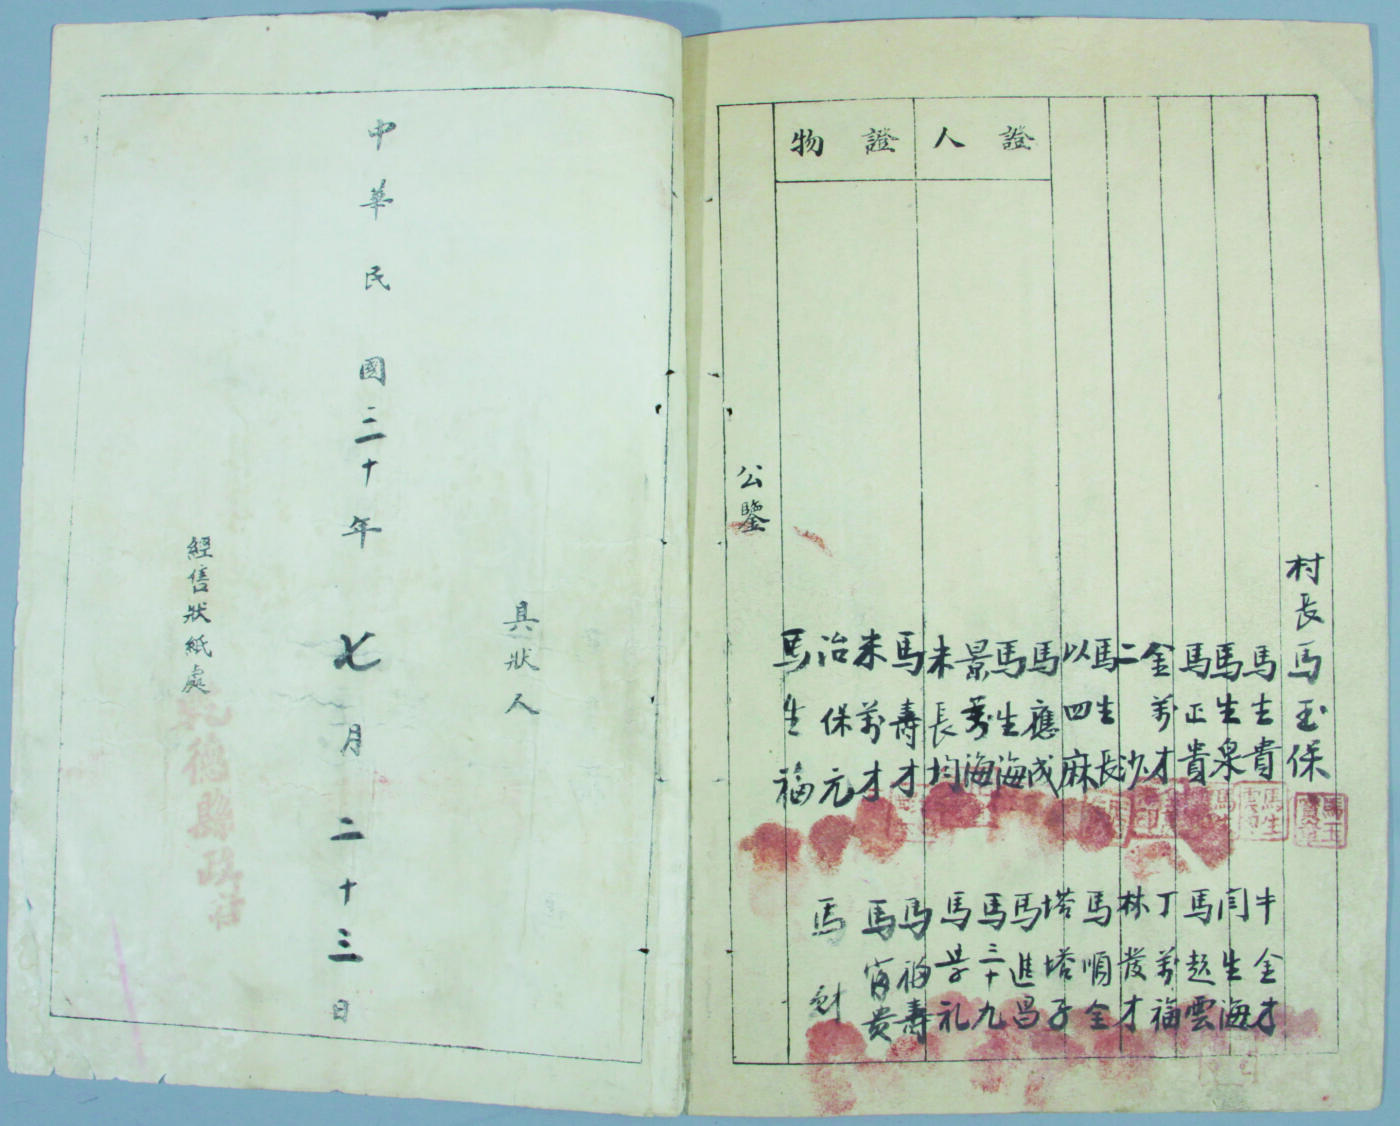 證人
證物
村長馬玉保
馬玉
馬主貴
馬生
馬生泉
馬正貴
金萬才
二沙
馬生長
以四麻
馬應成
馬生海
景萬海
未長均
馬壽才
未萬才
冶保元
馬生福
牛金才
閆生海
馬趕雲
丁萬福
林發才
馬順全
塔塔子
馬進昌
馬三十九
馬學礼
馬福壽
馬富貴
馬財
公鑒
具狀人
中華民國三十年七月二十三日
經售狀紙處
德縣政府